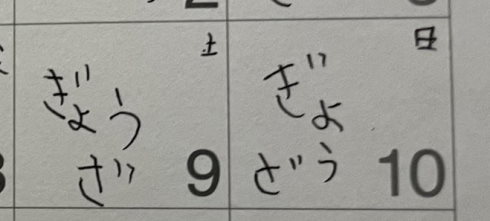 土
ぎょう
ざ 9
日
ぎょ
ざう 10